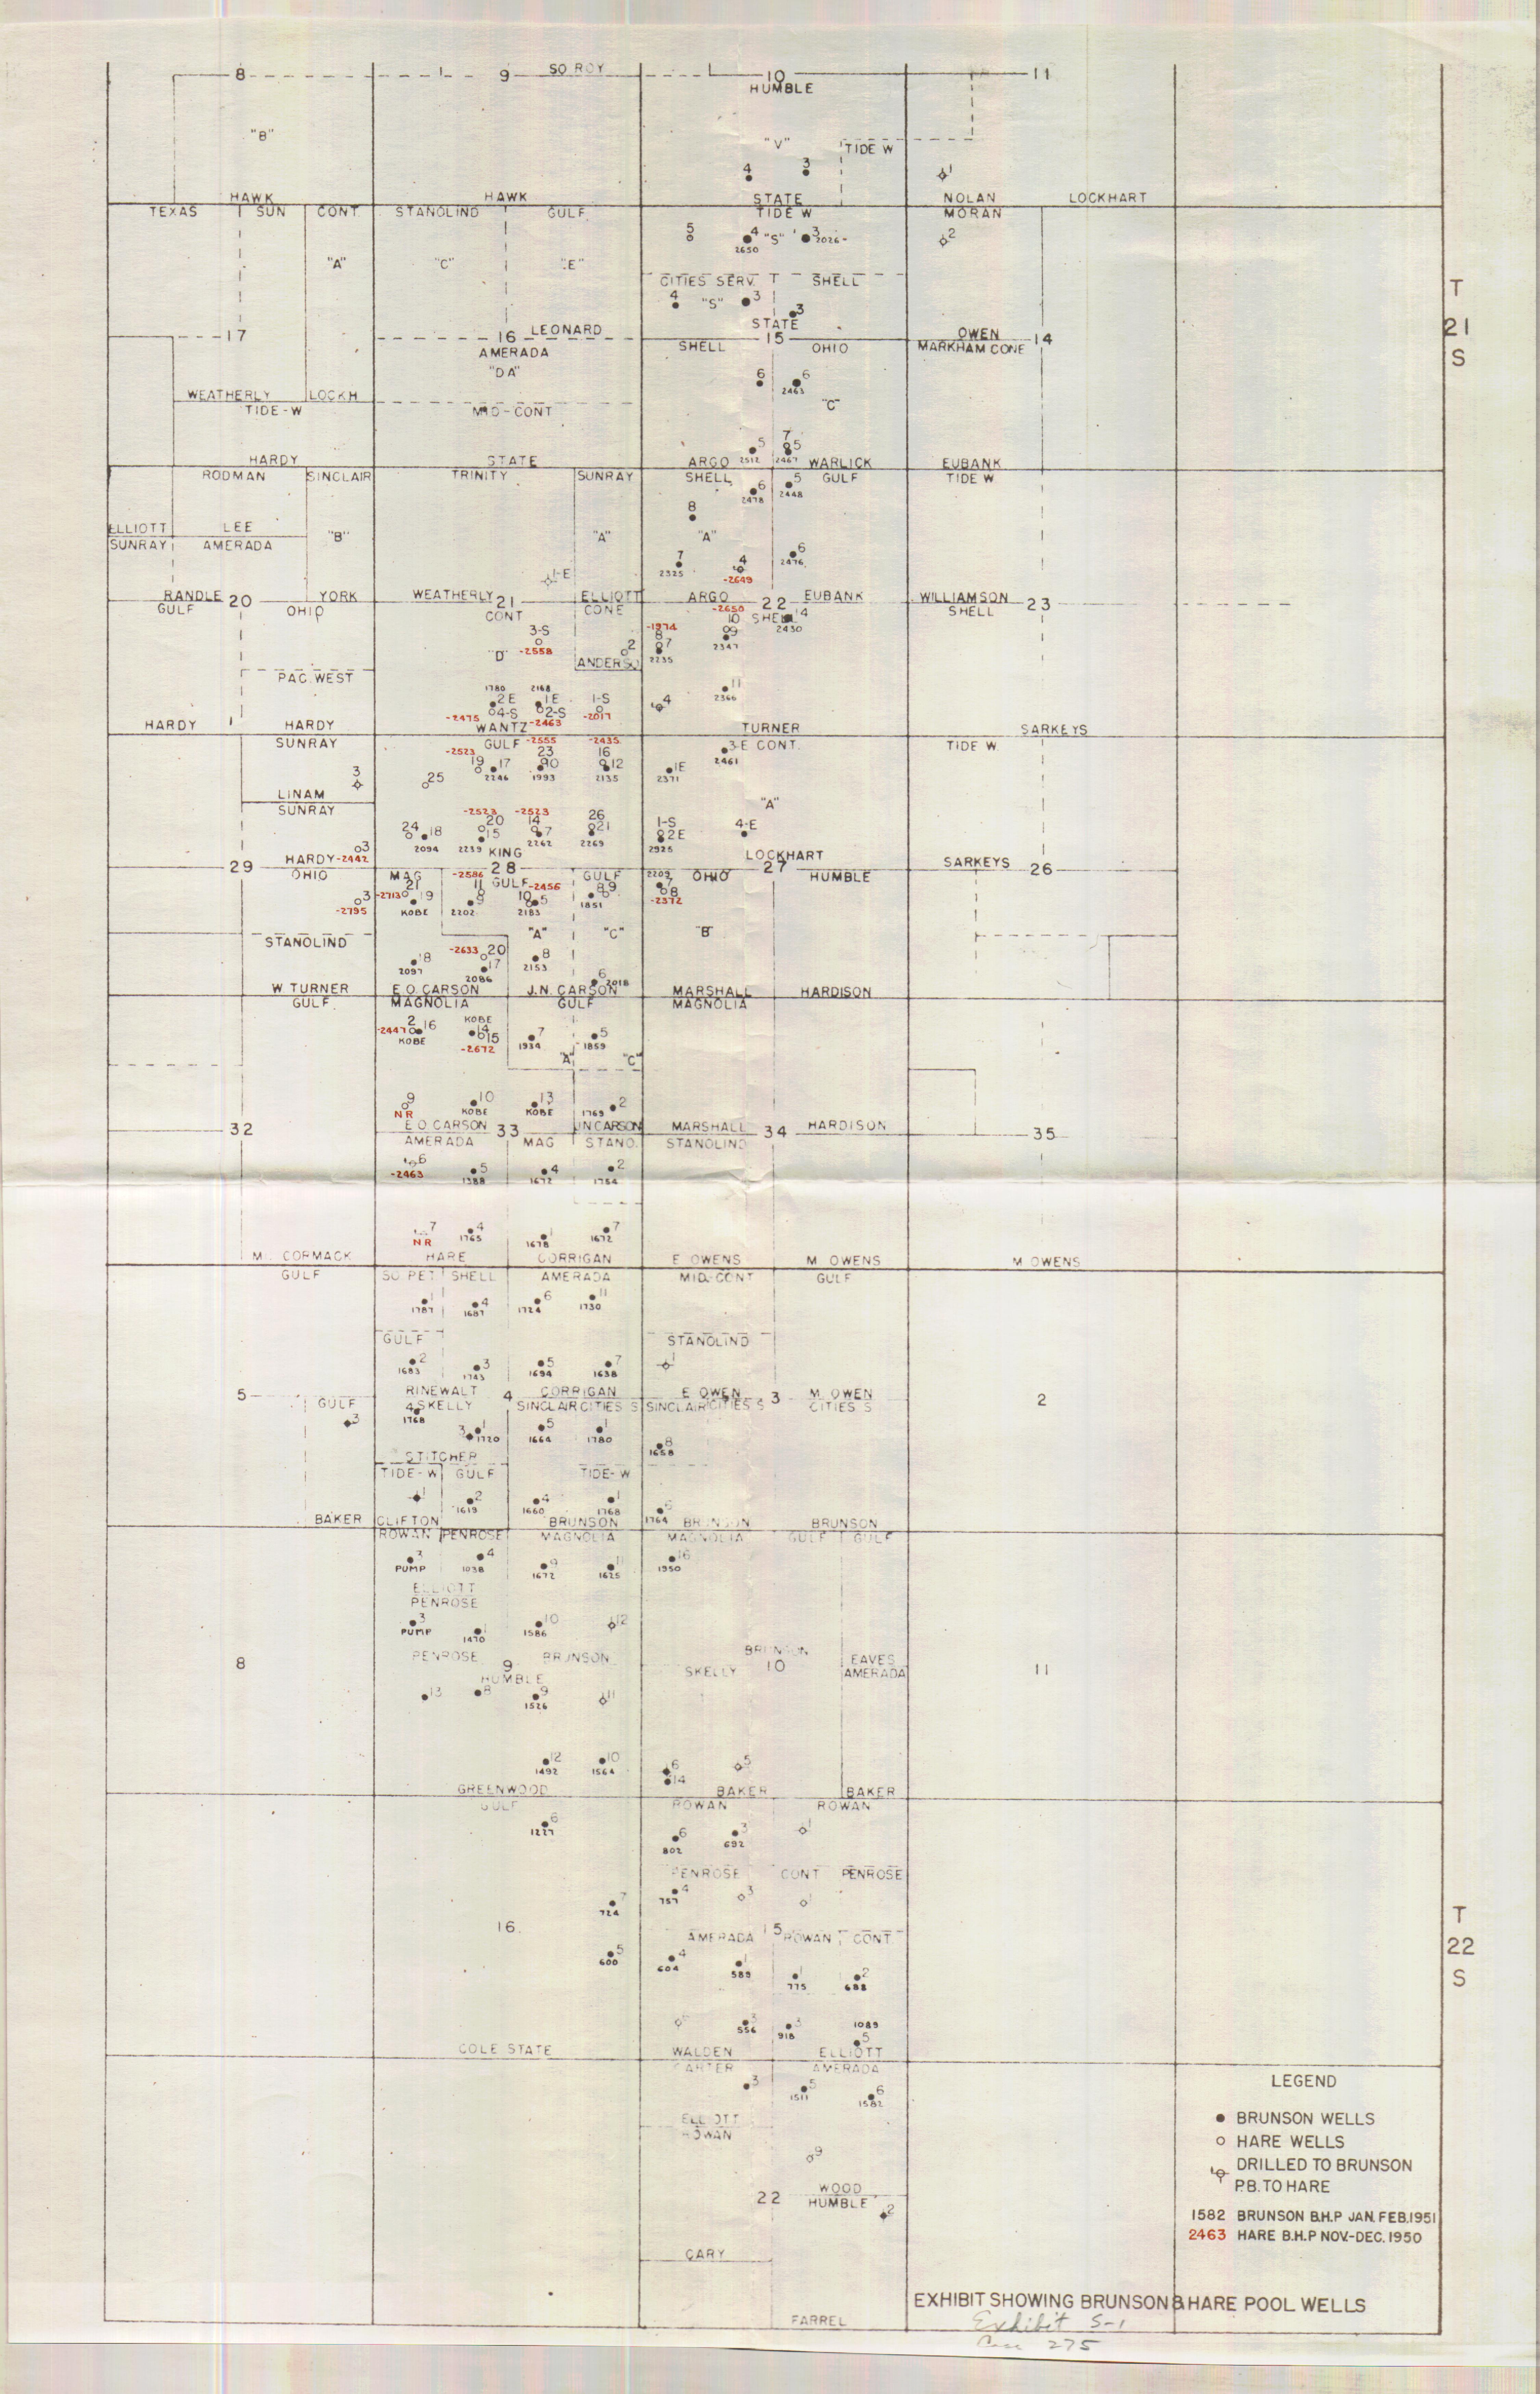 8 9 SO ROY 10 11
HUMBLE
"B"
"V" TIDE W
4 3 1
HAWK HAWK STATE NOLAN LOCKHART
TEXAS SUN CONT. STANOLIND GULF TIDE W MORAN
5 4 "S" 3 2026 2
2650
"A" "C" "E"
CITIES SERV. SHELL
T
21
S
4 "S" 3 3
STATE
17 16 LEONARD 15 OWEN 14
AMERADA SHELL OHIO MARKHAM CONE
"DA"
6 6
2463
WEATHERLY LOCKH "C"
TIDE-W MID-CONT
7
5 5
HARDY STATE ARGO 2512 2467 WARLICK EUBANK
RODMAN SINCLAIR TRINITY SUNRAY SHELL GULF TIDE W
6 5
2478 2448
8
ELLIOTT LEE "B" "A" "A"
SUNRAY AMERADA
7 4 6
2325 -2649 2476
1-E
RANDLE 20 YORK WEATHERLY 21 ELLIOTT ARGO 22 EUBANK WILLIAMSON 23
GULF OHIO CONT CONE -2650 SHELL SHELL
3-S -1974 10 4
8 9 2430
"D" -2558 2 7 2347
ANDERSO 2235
PAC. WEST
1780 2168 11
2E 1E 1-S 4 2366
-2475 4-S 2-S -2017
HARDY HARDY WANTZ -2463 TURNER SARKEYS
SUNRAY GULF -2555 -2435 3-E CONT. TIDE W
-2523 23 16 2461
3 19 17 12 1E
25 2246 1993 2135 2371
LINAM "A"
SUNRAY -2523 -2523
20 14 26 1-S 4-E
24 18 15 7 21 2E
2094 2239 KING 2262 2269 2925
3 LOCKHART
29 HARDY -2442 28 27 SARKEYS 26
OHIO MAG -2586 GULF -2456 GULF 2209 OHIO HUMBLE
21 11 8 9 7
3 -2713 19 9 10 5 1851 8
-2795 KOBE 2202 2183 -2372
"A" "C" "B"
STANOLIND -2633 20 8
18 17 2153
2097 2086 6 2018
W. TURNER E.O. CARSON J.N. CARSON MARSHALL HARDISON
GULF MAGNOLIA GULF MAGNOLIA
2 KOBE
-2447 16 14 7 5
KOBE 15 1934 1859
-2672 "A" "C"
9 10 13 2
NR KOBE KOBE 1769
32 E.O. CARSON 33 J.N CARSON MARSHALL 34 HARDISON 35
AMERADA MAG STANO. STANOLIND
6 5 4 2
-2463 1388 1672 1754
7 4 1 7
NR 1765 1678 1672
CORMACK HARE CORRIGAN E OWENS M OWENS M OWENS
GULF SO PET SHELL AMERADA MID-CONT GULF
1 4 6 11
1787 1687 1724 1730
GULF STANOLIND
2 3 5 7 1
1683 1743 1694 1638
5 RINEWALT 4 CORRIGAN E OWEN 3 M OWEN 2
GULF 4 SKELLY SINCLAIR CITIES S SINCLAIR CITIES S CITIES S
3 1768
3 1 5 1 8
1720 1664 1780 1658
STITCHER
TIDE-W GULF TIDE-W
1 2 4 1 6
1619 1660 1768 1764
BAKER CLIFTON BRUNSON BRUNSON BRUNSON
ROWAN PENROSE MAGNOLIA MAGNOLIA GULF GULF
3 4 9 11 16
PUMP 1038 1672 1625 1950
ELLIOTT
PENROSE
3 1 10 12
PUMP 1470 1586
PENROSE BRUNSON BRUNSON EAVES
8 9 SKELLY 10 AMERADA 11
HUMBLE
13 8 9 11
1526
12 10 6 5
1492 1564 14
GREENWOOD BAKER BAKER
GULF ROWAN ROWAN
6 6 3 1
1227 802 692
PENROSE CONT PENROSE
7 4 3 1
724 757
T
22
S
16. AMERADA 15 ROWAN CONT.
5 4 1 1 2
600 604 589 775 688
6 3 3 1089
556 918 5
COLE STATE WALDEN ELLIOTT
CARTER AMERADA
3 5 6
1511 1582
ELLIOTT
ROWAN
9
22 WOOD
HUMBLE 2
CARY
FARREL
LEGEND
BRUNSON WELLS
HARE WELLS
DRILLED TO BRUNSON
P.B. TO HARE
1582 BRUNSON B.H.P JAN. FEB.1951
2463 HARE B.H.P NOV.-DEC. 1950
EXHIBIT SHOWING BRUNSON & HARE POOL WELLS
Exhibit S-1
Case 275